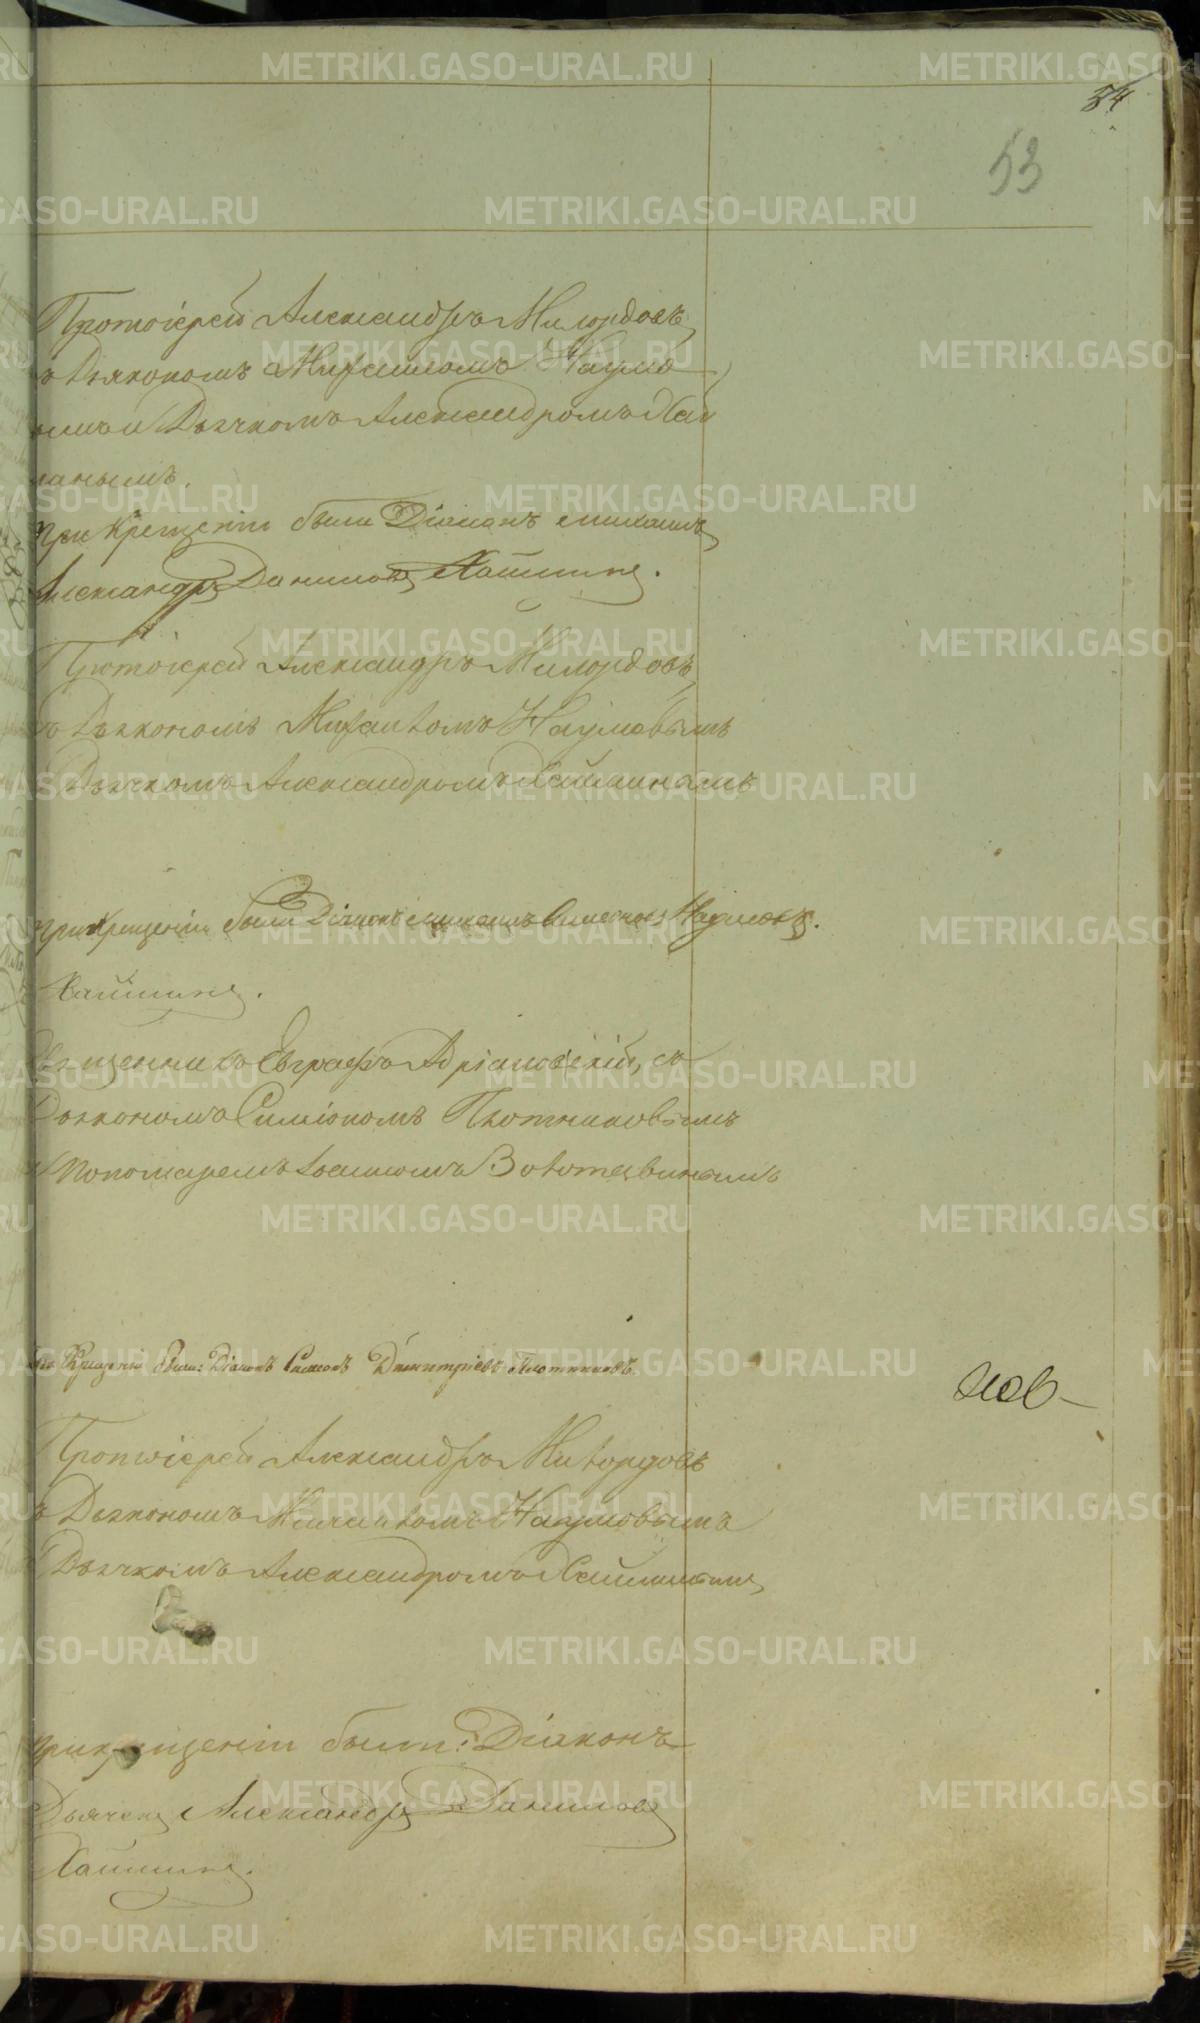 54
53
Протоіерей Александръ Милордовъ
Дьякономъ Михаиломъ Наумо
и Дьячкомъ Александромъ Хай
При Крещеніи были Діаконъ
Александръ Даниловъ Хайминъ.
Протоіерей Александръ Милордовъ
Дьякономъ Михаиломъ Наумовымъ
Дьячкомъ Александромъ Хайминымъ
При Крещеніи были Діаконъ Наумовъ.
Хайминъ.
Священникъ Евграфъ Адріановскій, съ
Дьякономъ Симіономъ Плотниковымъ
Пономаремъ Іоанномъ Золотавинымъ
При Крещеніи были: Діаконъ Симеонъ Димитріевъ Плотниковъ.
Протоіерей Александръ Милордовъ
Дьякономъ Михаиломъ Наумовымъ
Дьячкомъ Александромъ Хайминымъ
При крещеніи были: Діаконъ
Дьячекъ Александръ Даниловъ
Хайминъ.
METRIKI.GASO-URAL.RU